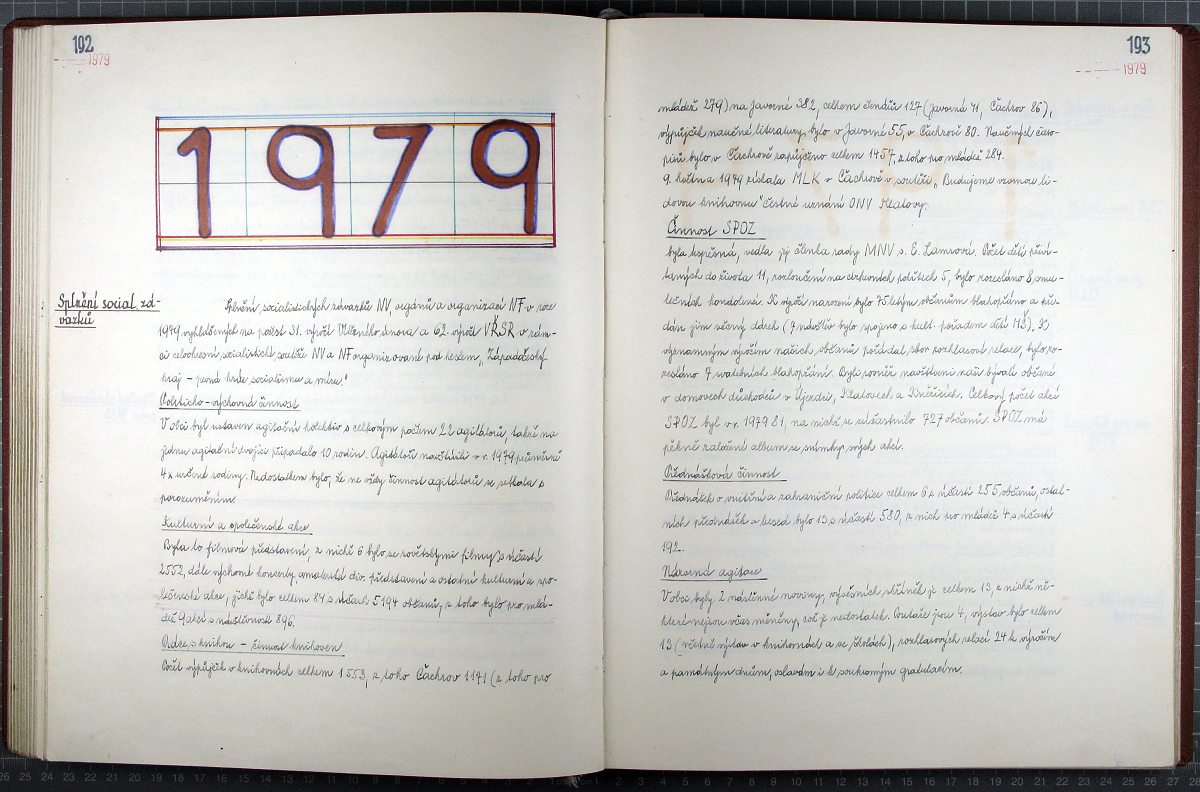 192
1979
1979
Splnění social. zá-
vazků
Splnění socialistických závazků NV, orgánů a organizací NF v roce
1979 vyhlášených na počest 31. výročí Vítězného února a 62. výročí VŘSR v rám-
ci celookresní socialistické soutěže NV a NF organizované pod heslem „Západočeský
kraj – pevná hráz socialismu a míru."
Politicko-výchovná činnost
V obci byl ustaven agitační kolektiv s celkovým počtem 22 agitátorů, takže na
jednu agitační dvojici připadalo 10 rodin. Agitátoři navštívili v r. 1979 průměrně
4x určené rodiny. Nedostatkem bylo, že ne vždy činnost agitátorů se setkala s
porozuměním.
Kulturní a společenské akce
Byla to filmová představení, z nichž 6 bylo se sovětskými filmy s účastí
2552, dále výchovné koncerty, amatérská div. představení a ostatní kulturní a spo-
lečenské akce, jichž bylo celkem 84 s účastí 5194 občanů, z toho bylo pro mlá-
dež 9 akcí s návštěvností 896.
Práce s knihou – činnost knihoven
Počet výpůjček v knihovnách celkem 1553, z toho Čachrov 1171 (z toho pro
193
1979
mládež 279) na Javorné 382, celkem čtenářů 127 (Javorná 41, Čachrov 86),
výpůjček naučné literatury bylo v Javorné 55, v Čachrově 80. Naučných časo-
pisů bylo v Čachrově zapůjčeno celkem 1457, z toho pro mládež 284.
9. května 1979 získala MLK v Čachrově v soutěži „Budujeme vzornou li-
dovou knihovnu" čestné uznání ONV Klatovy.
Činnost SPOZ
byla úspěšná, vedla ji členka rady MNV s. E. Lamrová. Počet dětí přiví-
taných do života 11, rozloučení na círhovních pohřbech 5, bylo rozesláno 8 smu-
tečních kondolencí. K výročí narození bylo 75 letým občanům blahopřáno a pře-
dán jim věcný dárek (7 návštěv bylo spojeno s kult. pořadem dětí MŠ). K
významným výročím našich občanů pořádal sbor rozhlasové relace, bylo ro-
zesláno 7 svatebních blahopřání. Byli rovněž navštíveni naši bývalí občané
v domovech důchodců v Újezdci, Klatovech a Kněžicích. Celkový počet akcí
SPOZ byl v r. 1979 81, na nichž se zúčastnilo 727 občanů. SPOZ má
pěkně založené album se snímky svých akcí.
Přednášková činnost
Přednášek o vnitřní a zahraniční politice celkem 6 s účastí 255 občanů, ostat-
ních přednášek a besed bylo 13 s účastí 580, z nich pro mládež 4 s účastí
192.
Názorná agitace
V obci byly 2 nástěnné noviny, vývěsních skříněk je celkem 13, z nichž ně-
které nejsou včas měněny, což je nedostatek. Poutače jsou 4, výstav bylo celkem
13 (včetně výstav v knihovnách a ve školách), rozhlasových relací 24 k výročím
a památným dnům, oslavám i k soukromým gratulacím.